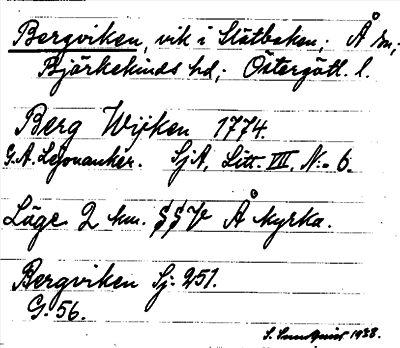 Bergviken, vik i Slätbaken; Å sn,
Björkekinds hd; Östergötl. l.
Berg Wijken 1774.
G.A. Lejonanker. SjA, Litt. VIII. N:o 6.
Läge 2 km. SSV Å kyrka.
Bergviken Sj. 251.
G. 56.
S. 1938.